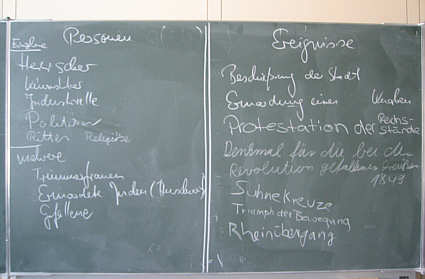 Einzelne
Personen
Herrscher
Künstler
Industrielle
Politiker
Ritter Religiöse
mehrere
Trümmerfrauen
Ermordete Juden
Gefallene
Ereignisse
Beschießung der Stadt
Ermordung eines
Protestation der Rechts-
stände
Denkmal für die bei der
Revolution gefallenen
1849
Sühnekreuze
Triumph der Bewegung
Rheinübergang